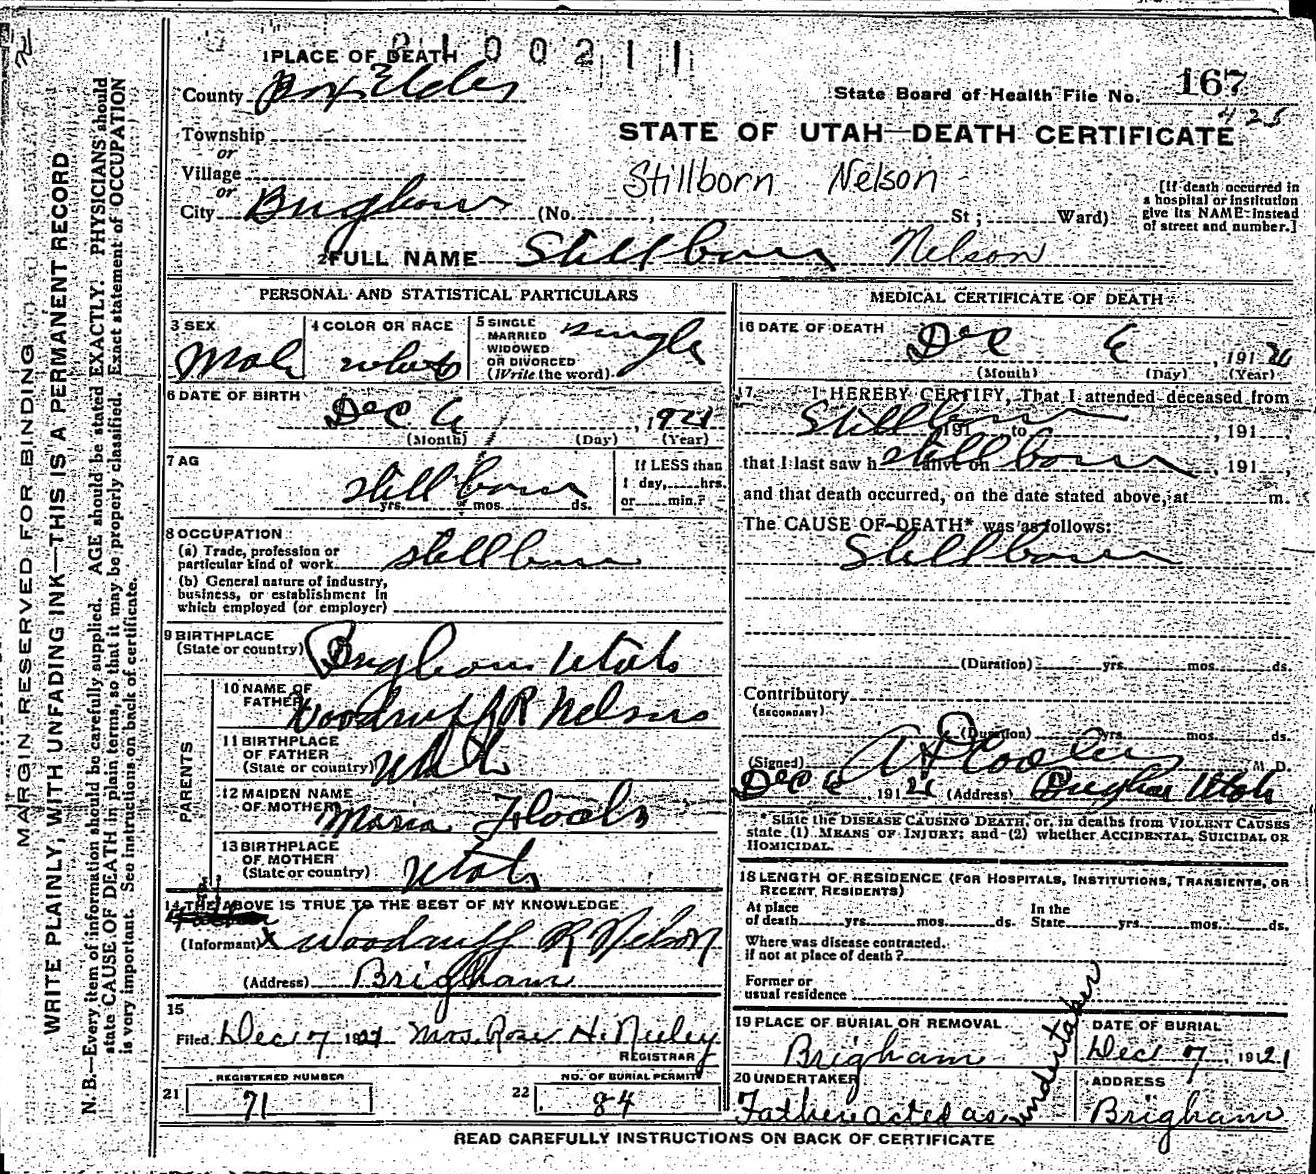 2100211
1 PLACE OF DEATH
County Box Elder
State Board of Health File No. 167
425
Township
or
STATE OF UTAH—DEATH CERTIFICATE
Village
or
Stillborn Nelson
City Brigham (No. , St ; Ward)
[If death occurred in
a hospital or institution
give its NAME instead
of street and number.]
2 FULL NAME Stillborn Nelson
PERSONAL AND STATISTICAL PARTICULARS
3 SEX
Male
4 COLOR OR RACE
white
5 SINGLE
MARRIED
WIDOWED
OR DIVORCED
(Write the word)
single
6 DATE OF BIRTH
Dec 6 , 1921
(Month) (Day) (Year)
7 AG
stillborn
yrs. mos. ds.
If LESS than
1 day, hrs.
or min.?
8 OCCUPATION
(a) Trade, profession or
particular kind of work stillborn
(b) General nature of industry,
business, or establishment in
which employed (or employer)
9 BIRTHPLACE
(State or country) Brigham Utah
PARENTS
10 NAME OF
FATHER Woodruff R Nelson
11 BIRTHPLACE
OF FATHER
(State or country) Utah
12 MAIDEN NAME
OF MOTHER Maria
13 BIRTHPLACE
OF MOTHER
(State or country) Utah
14 THE ABOVE IS TRUE TO THE BEST OF MY KNOWLEDGE
(Informant) X Woodruff R Nelson
(Address) Brigham
15
Filed Dec 7 1921 Mrs. Rose H. Neeley
REGISTRAR
REGISTERED NUMBER
21 71
NO. OF BURIAL PERMIT
22 84
MEDICAL CERTIFICATE OF DEATH
16 DATE OF DEATH
Dec 6 , 191 21
(Month) (Day) (Year)
17 I HEREBY CERTIFY, That I attended deceased from
Stillborn 191 to , 191 ,
that I last saw h alive on stillborn , 191 ,
and that death occurred, on the date stated above, at m.
The CAUSE OF DEATH* was as follows:
Stillborn
(Duration) yrs. mos. ds.
Contributory
(SECONDARY)
(Duration) yrs. mos. ds.
(Signed) A D Cooley M. D.
Dec 6, 191 21 (Address) Brigham Utah
* State the DISEASE CAUSING DEATH, or, in deaths from VIOLENT CAUSES
state (1) MEANS OF INJURY; and (2) whether ACCIDENTAL, SUICIDAL OR
HOMICIDAL.
18 LENGTH OF RESIDENCE (FOR HOSPITALS, INSTITUTIONS, TRANSIENTS, OR
RECENT RESIDENTS)
At place
of death yrs. mos. ds.
In the
State yrs. mos. ds.
Where was disease contracted.
if not at place of death?
Former or
usual residence
19 PLACE OF BURIAL OR REMOVAL
Brigham
DATE OF BURIAL
Dec 7 1921
20 UNDERTAKER
Father acted as undertaker
ADDRESS
Brigham
READ CAREFULLY INSTRUCTIONS ON BACK OF CERTIFICATE
MARGIN RESERVED FOR BINDING
WRITE PLAINLY, WITH UNFADING INK—THIS IS A PERMANENT RECORD
N. B.—Every item of information should be carefully supplied. AGE should be stated EXACTLY. PHYSICIANS should
state CAUSE OF DEATH in plain terms, so that it may be properly classified. Exact statement of OCCUPATION
is very important. See instructions on back of certificate.